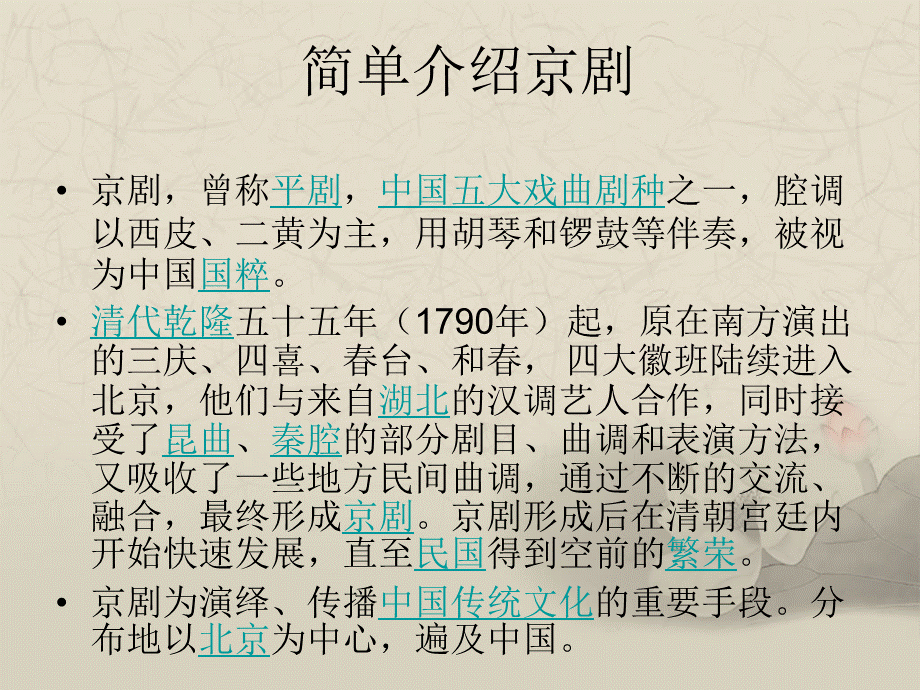 简单介绍京剧
• 京剧，曾称平剧，中国五大戏曲剧种之一，腔调
以西皮、二黄为主，用胡琴和锣鼓等伴奏，被视
为中国国粹。
• 清代乾隆五十五年（1790年）起，原在南方演出
的三庆、四喜、春台、和春， 四大徽班陆续进入
北京，他们与来自湖北的汉调艺人合作，同时接
受了昆曲、秦腔的部分剧目、曲调和表演方法，
又吸收了一些地方民间曲调，通过不断的交流、
融合，最终形成京剧。京剧形成后在清朝宫廷内
开始快速发展，直至民国得到空前的繁荣。
• 京剧为演绎、传播中国传统文化的重要手段。分
布地以北京为中心，遍及中国。